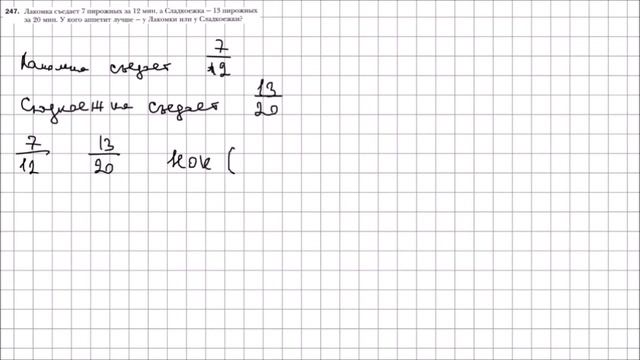 247. Лакомка съедает 7 пирожных за 12 мин, а Сладкоежка – 13 пирожных
за 20 мин. У кого аппетит лучше – у Лакомки или у Сладкоежки?
Лакомка съедает 7/12
Сладкоежка съедает 13/20
7/12 13/20 НОК (